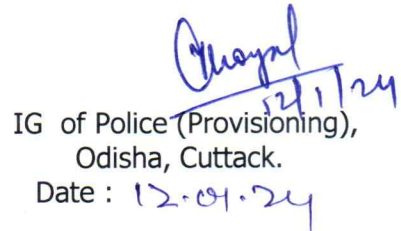 12/1/24
IG of Police (Provisioning),
Odisha, Cuttack.
Date : 12.01.24